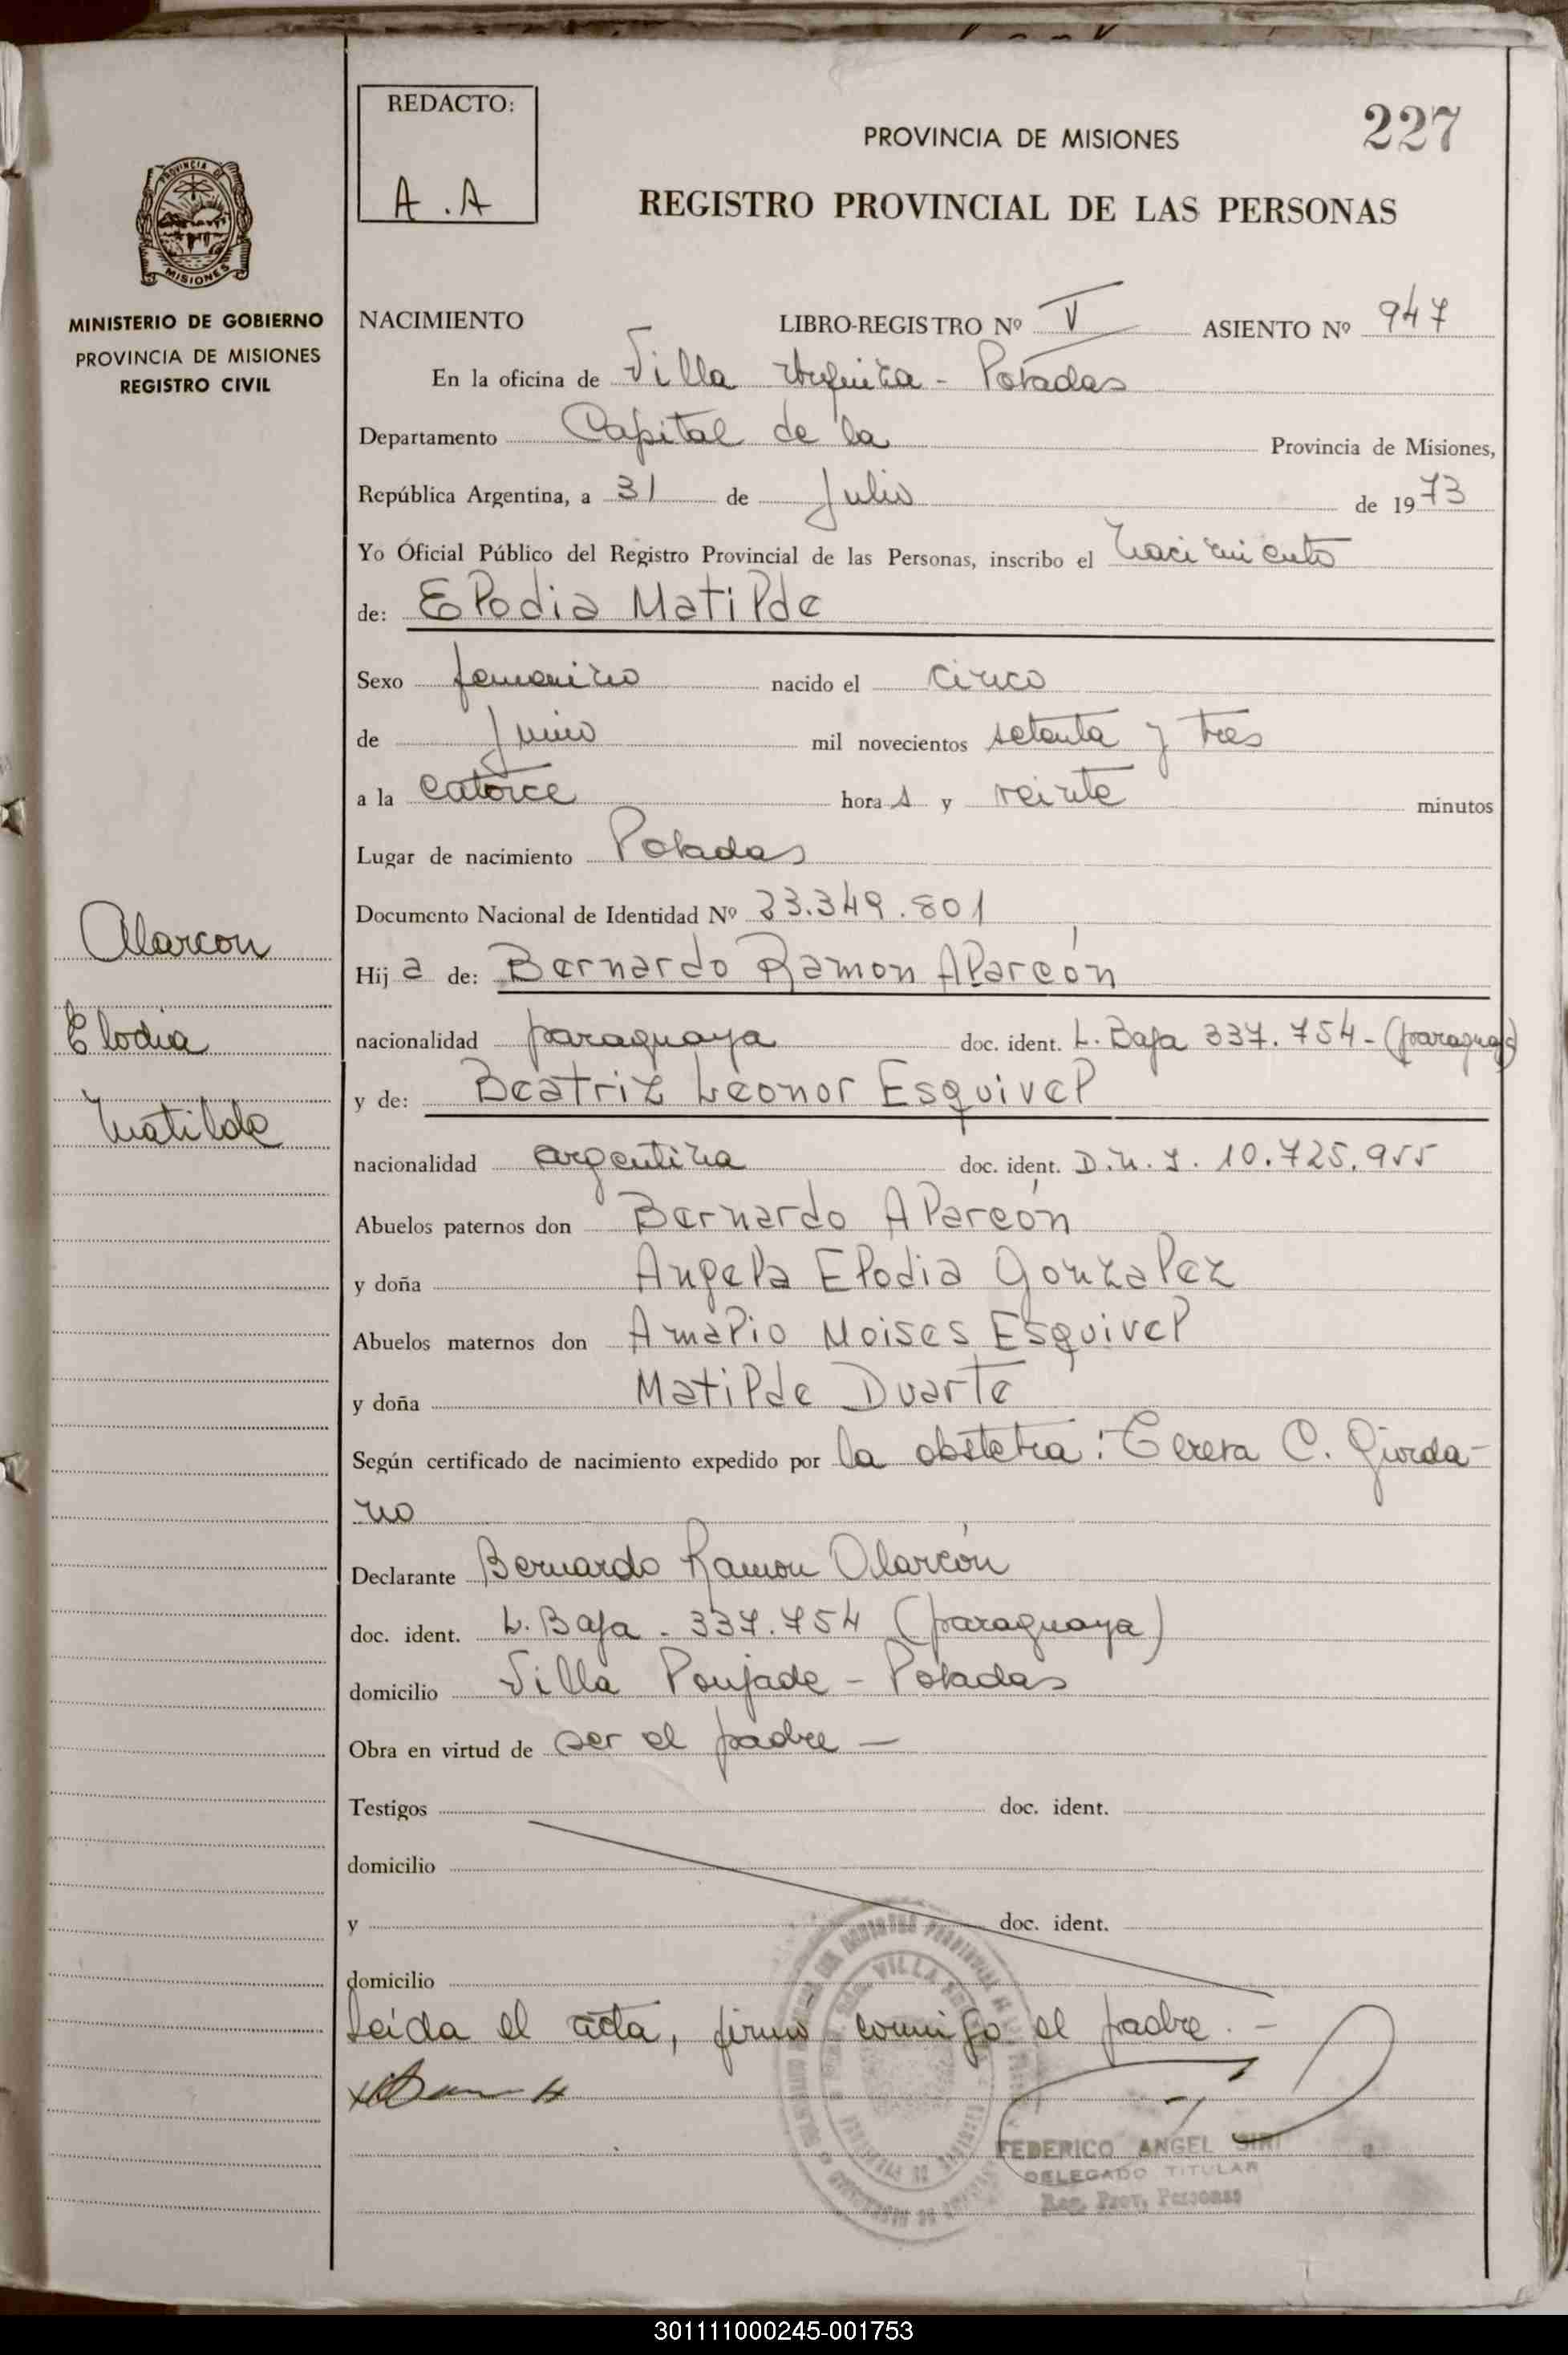 REDACTO:
A.A
227
PROVINCIA DE MISIONES
REGISTRO PROVINCIAL DE LAS PERSONAS
PROVINCIA DE
MISIONES
MINISTERIO DE GOBIERNO
PROVINCIA DE MISIONES
REGISTRO CIVIL
NACIMIENTO LIBRO-REGISTRO Nº V ASIENTO Nº 947
En la oficina de Villa Urquiza - Posadas
Departamento Capital de la Provincia de Misiones,
República Argentina, a 31 de Julio de 1973
Yo Oficial Público del Registro Provincial de las Personas, inscribo el nacimiento
de: Elodia Matilde
Sexo femenino nacido el cinco
de Junio mil novecientos setenta y tres
a la catorce hora s y veinte minutos
Lugar de nacimiento Posadas
Documento Nacional de Identidad Nº 23.349.801
Alarcon
Elodia
Matilde
Hij a de: Bernardo Ramon Alarcón
nacionalidad paraguaya doc. ident. L. Baja 337.754 - (paraguay)
y de: Beatriz Leonor Esquivel
nacionalidad argentina doc. ident. D.N.I. 10.725.955
Abuelos paternos don Bernardo Alarcón
y doña Angela Elodia Gonzalez
Abuelos maternos don Amalio Moises Esquivel
y doña Matilde Duarte
Según certificado de nacimiento expedido por la obstetra: Teresa C. Giorda-
no
Declarante Bernardo Ramon Alarcón
doc. ident. L. Baja - 337.754 (paraguaya)
domicilio Villa Poujade - Posadas
Obra en virtud de ser el padre —
Testigos doc. ident.
domicilio
y doc. ident.
domicilio
Leída el acta, firmó conmigo el padre. -
FEDERICO ANGEL SIRI
DELEGADO TITULAR
Reg. Prov. Personas
301111000245-001753